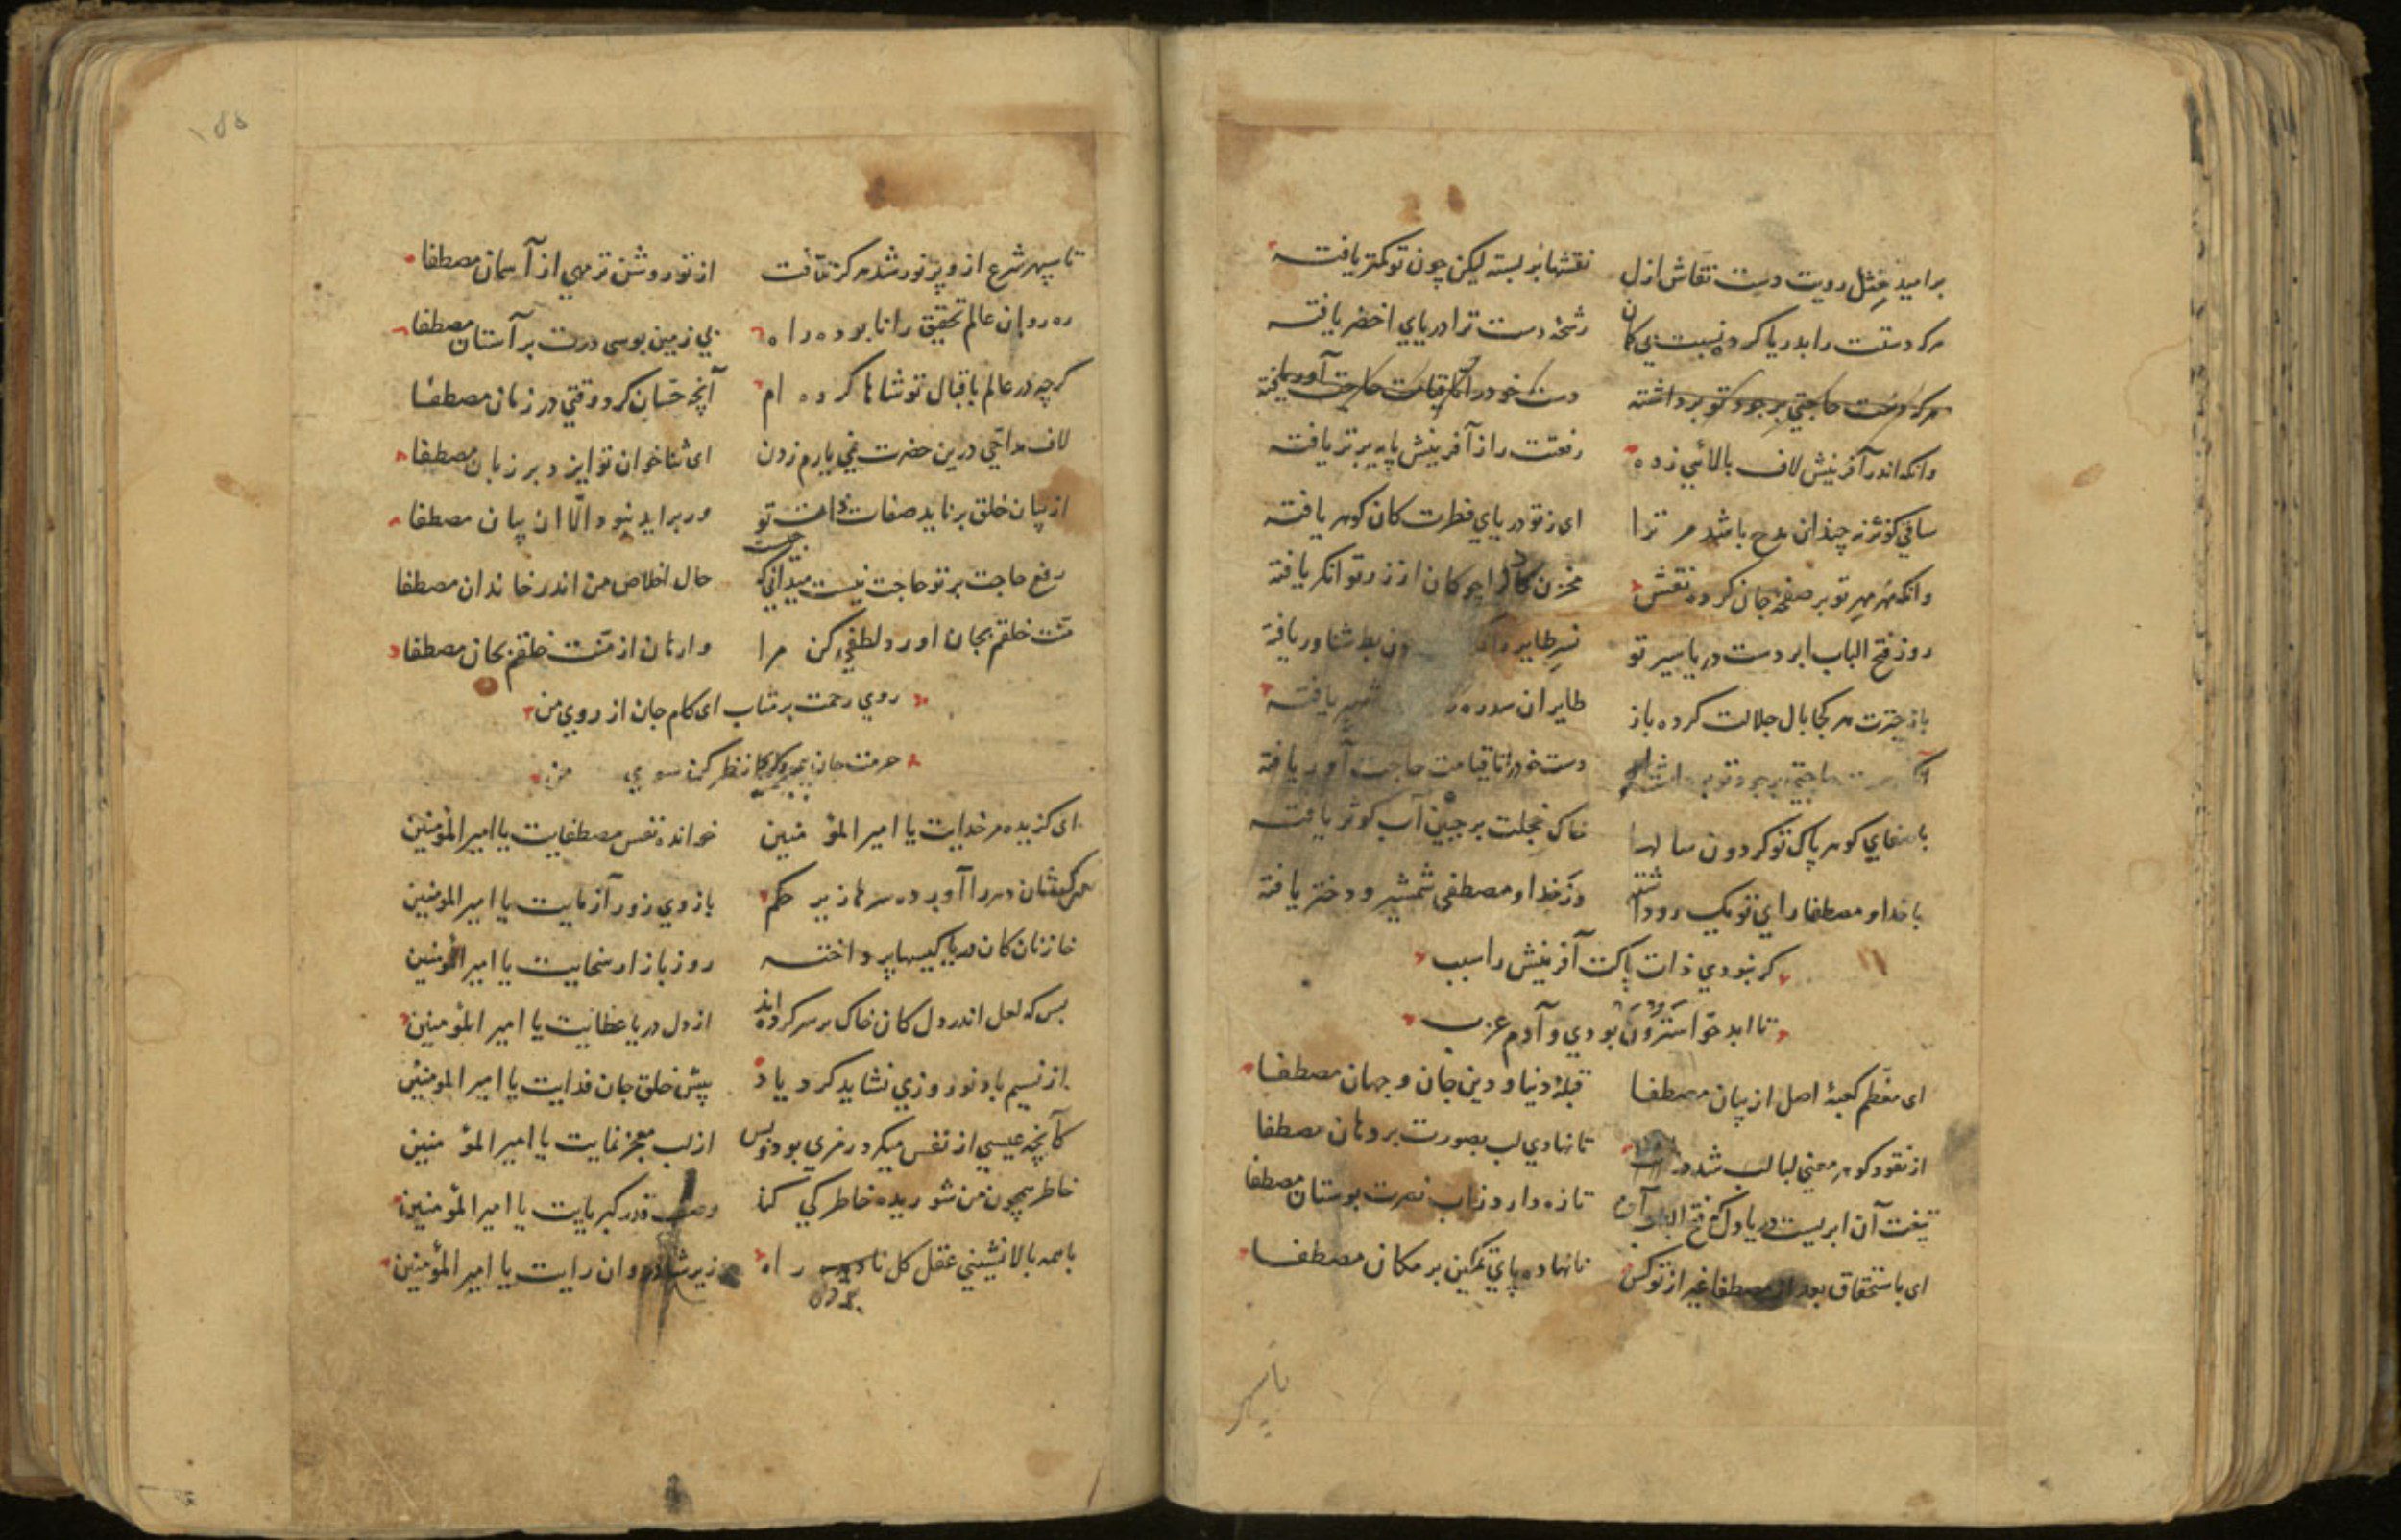 بر امید مثل رویت دست نقاش ازل نقشها بر بسته لیکن چون تو کمتر یافته
هرکه دستت را بدریا کرده نسبت بی کان رشحهٔ دست ترا دریای اخضر یافته
هرکه دست حاجتی بر جود تو برداشته دست خود را تا قیامت حاجت آور یافته
وانکه اندر آفرینش لاف بالائی زده رفعتت را ز آفرینش پایه برتر یافته
ساقی کوثر نه چندان مدح باشد مر ترا ای ز تو دریای فطرت کان گوهر یافته
وانکه مُهر مِهر تو بر صفحهٔ جان کرده نقش مخزن دل را چو کان از زر توانگر یافته
روز فتح الباب ابر دست دریا سیر تو نسر طایر را ون بط شناور یافته
باز چترت هر کجا بال جلالت کرده باز طایران سدره شهپر یافته
حاجتی بر جود تو دست خود را تا قیامت حاجت آور یافته
با صفای گوهر پاک تو گردون سالها خاک خجلت بر جبین آب کوثر یافته
با خدا و مصطفا رای تو یک رو داشته وز خدا و مصطفی شمشیر و دختر یافته
گر نبودی ذات پاکت آفرینش را سبب
تا ابد حوّا سترون بودی و آدم عزب
ای معظّم کعبهٔ اصل از بیان مصطفا قبلهٔ دنیا و دین جان و جهان مصطفا
از نقود گوهر معنی لبالب شد تا نهادی لب بصورت بر دهان مصطفا
تیغت آن ابریست دریا دل که فتح الباب آن تازه دارد ز آب نصرت بوستان مصطفا
ای باستحقاق بعد از مصطفا غیر از تو کس نانهاده پای تمکین بر مکان مصطفا
تا سپهر
۱۵۵
تا سپهر شرع از و پر نور شد هرگز نتافت از تو روشن تر مهی از آسمان مصطفا
ره روان عالم تحقیق را نا بوده راه بی زمین بوسی درت بر آستان مصطفا
گرچه در عالم باقبال تو شاها کرده ام آنچه حسّان کرد وقتی در زمان مصطفا
لاف مداحی درین حضرت نمی یارم زدن ای ثنا خوان تو ایزد بر زبان مصطفا
از بیان خلق برناید صفات ذات تو ور براید نبود الّا ان بیان مصطفا
رفع حاجت بر تو حاجت نیست میدانی که چیست حال اخلاص من اندر خاندان مصطفا
منّت خلقم بجان اورد لطفی کن مرا وارهان از منّت خلقم بجان مصطفا
روی رحمت بر متاب ای کام جان از روی من
حرمت جان نظر کن سوی من
ای گزیده مر خدایت یا امیر المؤمنین خوانده نفس مصطفایت یا امیر المؤمنین
سرکشان دهر را آورده سرها زیر حکم بازوی زور آزمایت یا امیر المؤمنین
خازنان کان و دریا کیسها پرداخته روز بازار سخایت یا امیر المؤمنین
بس که لعل اندر دل کان خاک بر سر کرده اند از دل دریا عطایت یا امیر المؤمنین
از نسیم باد نوروزی نشاید کرد یاد پیش خلق جان فدایت یا امیر المؤمنین
کآنچه عیسی از نفس میکرد رمزی بود و بس از لب معجز نمایت یا امیر المؤمنین
خاطر همچون من شوریده خاطر کی کند وصف قدر کبریایت یا امیر المؤمنین
با همه بالا نشینی عقل کل نابرده راه زیر شادروان رایت یا امیر المؤمنین